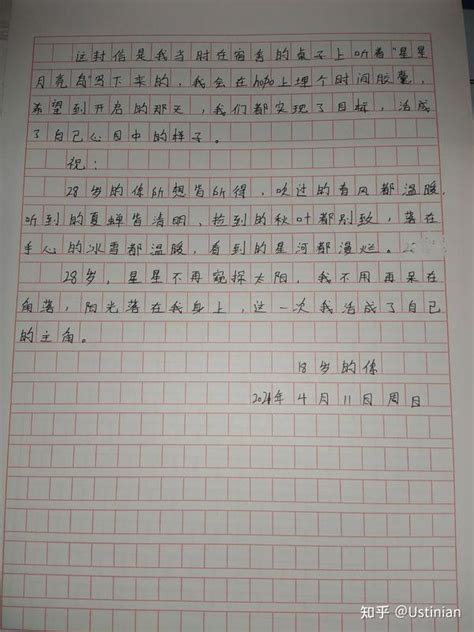 这封信是我当时在宿舍的桌子上听着“星星
月亮岛”写下来的，我会在hopo上埋个时间胶囊，
希望到开启的那天，我们都实现了目标，活成
了自己心目中的样子。
祝：
28岁的你所想皆所得，吹过的春风都温暖，
听到的夏蝉皆清明，捡到的秋叶都别致，落在
手心的冰雪都温暖，看到的星河都漫烂。
28岁，星星不再窥探太阳，我不用再呆在
角落，阳光落在我身上，这一次我活成了自己
的主角。
18岁的你
2024年4月11日周日
知乎 @Ustinian